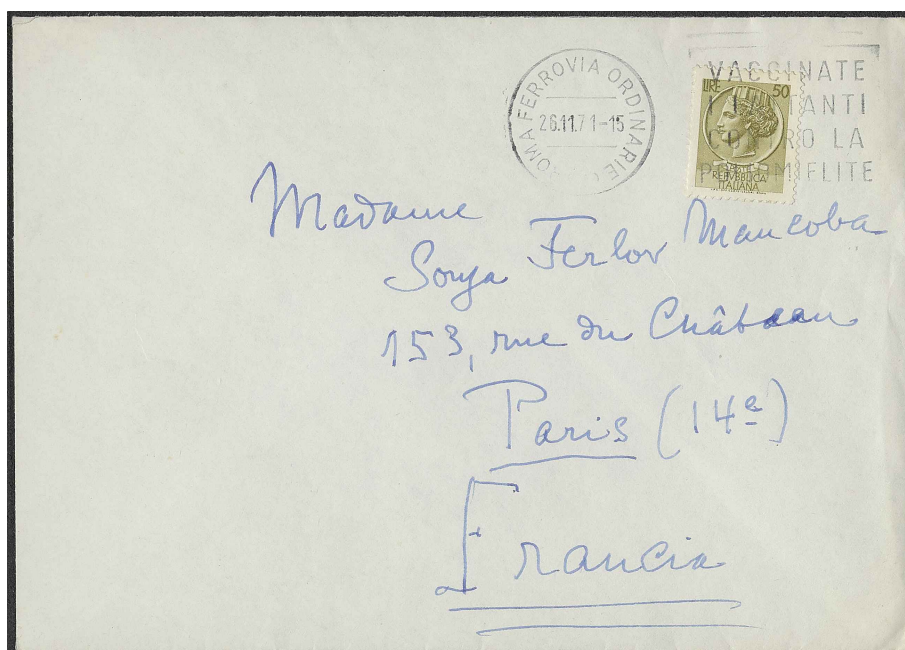 ROMA FERROVIA ORDINARIE
26.11.71-15
VACCINATE
CONTRO LA
LIRE 50
POSTE
REPVBBLICA
ITALIANA
Madame
Sonja Ferlov Mancoba
153, rue du Château
Paris (14e)
Francia